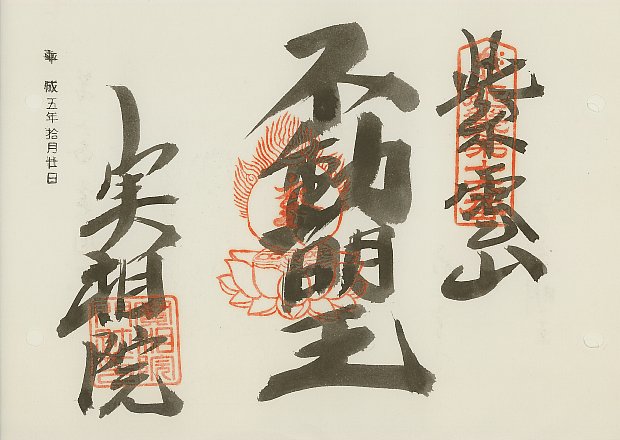 紫雲山
不動明王
実相院
平成五年拾月廿日